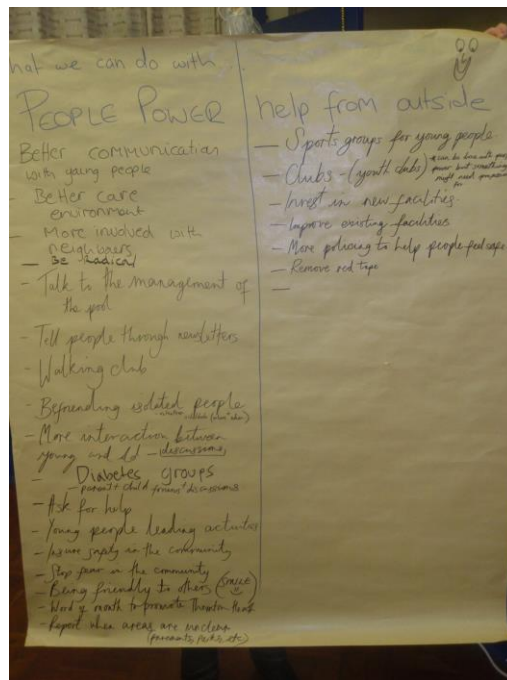 hat we can do with
PEOPLE POWER
Better communication
with young people
- Better care
environment
- More involved with
neighbours
- Be Radical
- Talk to the management of
the pool
- Tell people through newsletters
- Walking club
- Befriending isolated people
- More interaction between
young and old - discussions
- Diabetes groups
- parent + child forums/discussions
- Ask for help
- Young people leading activities
- Insure safety in the community
- Stop fear in the community
- Being friendly to others (SMILE)
- Word of mouth to promote Thornton Heath
- Report when areas are unclean
(pavements, parks, etc)
help from outside
- Sports groups for young people
- Clubs - (youth clubs) * can be done with people
power but something
might need
for
- Invest in new facilities
- Improve existing facilities
- More policing to help people feel safe
- Remove red tape
-